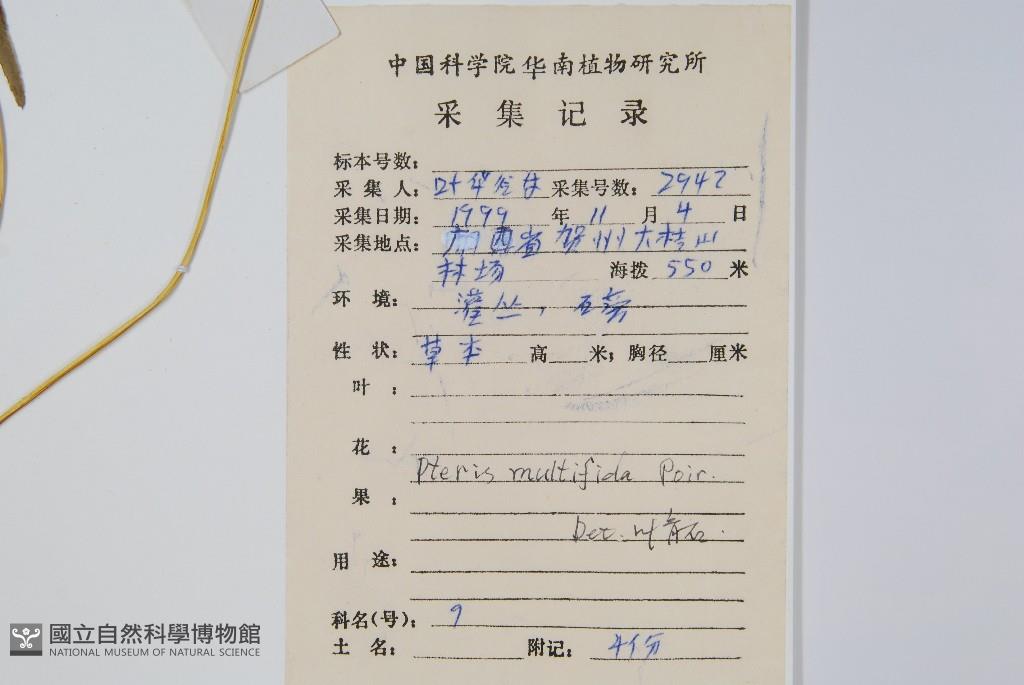 中国科学院华南植物研究所
采集记录
标本号数:
采集人: 叶华谷 采集号数: 2942
采集日期: 1999 年 11 月 4 日
采集地点: 广西省贺州大桂山
林场 海拨 550 米
环境: 灌丛,石旁
性状: 草本 高 米; 胸径 厘米
叶:
花:
Pteris multifida Poir.
果:
Det. 叶育石.
用途:
科名(号): 9
土名: 附记: 4份
國立自然科學博物館
NATIONAL MUSEUM OF NATURAL SCIENCE